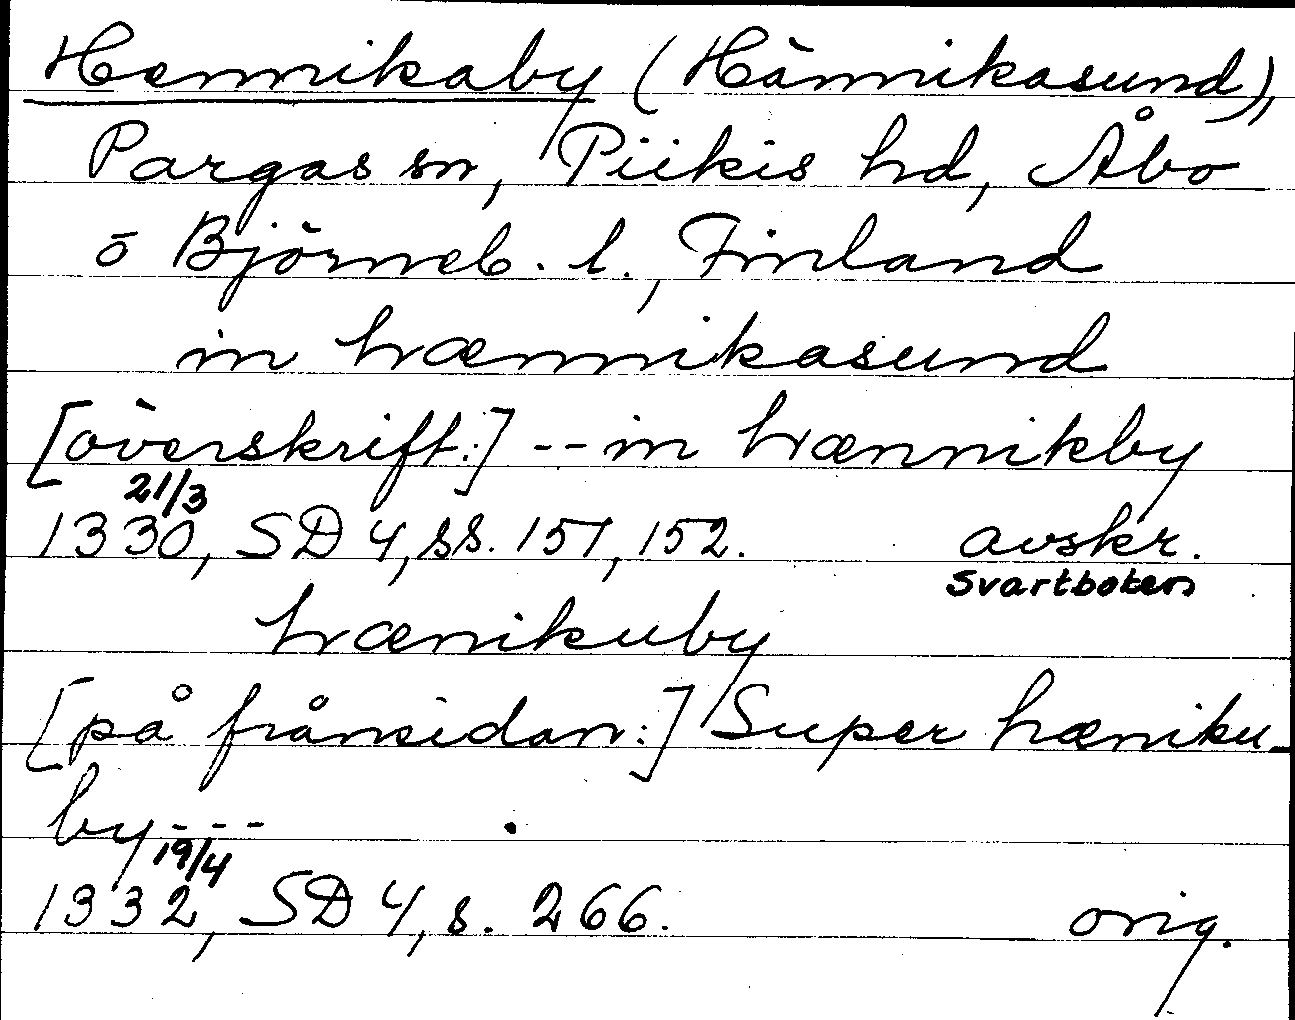 Hennikaby (Hännikasund),
Pargas sn, Piikis hd, Åbo
o Björneb. l., Finland
in hænnikasund
[överskrift:] -- in hænnikby
21/3
1330, SD 4, ss. 151, 152. avskr.
Svartboken
hænikuby
[på frånsidan:] Super hæniku-
by ---
19/4
1332, SD 4, s. 266. orig.